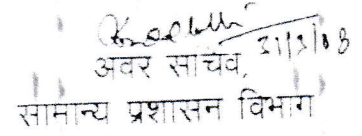 31/3/08
अवर सचिव,
सामान्य प्रशासन विभाग